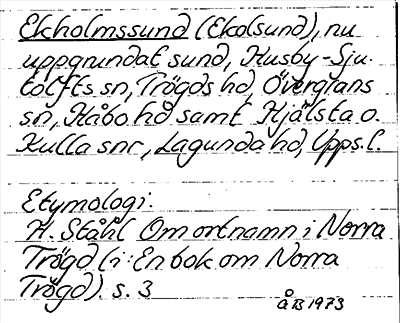 Ekholmssund (Ekolsund), nu
uppgrundat sund, Husby-Sju-
tolfts sn, Trögds hd, Övergrans
sn, Håbo hd samt Hjälsta o.
Kulla snr, Lagunda hd, Upps. l.
Etymologi:
H. Ståhl Om ortnamn i Norra
Trögd (i: En bok om Norra
Trögd). s. 3
ÅB 1973